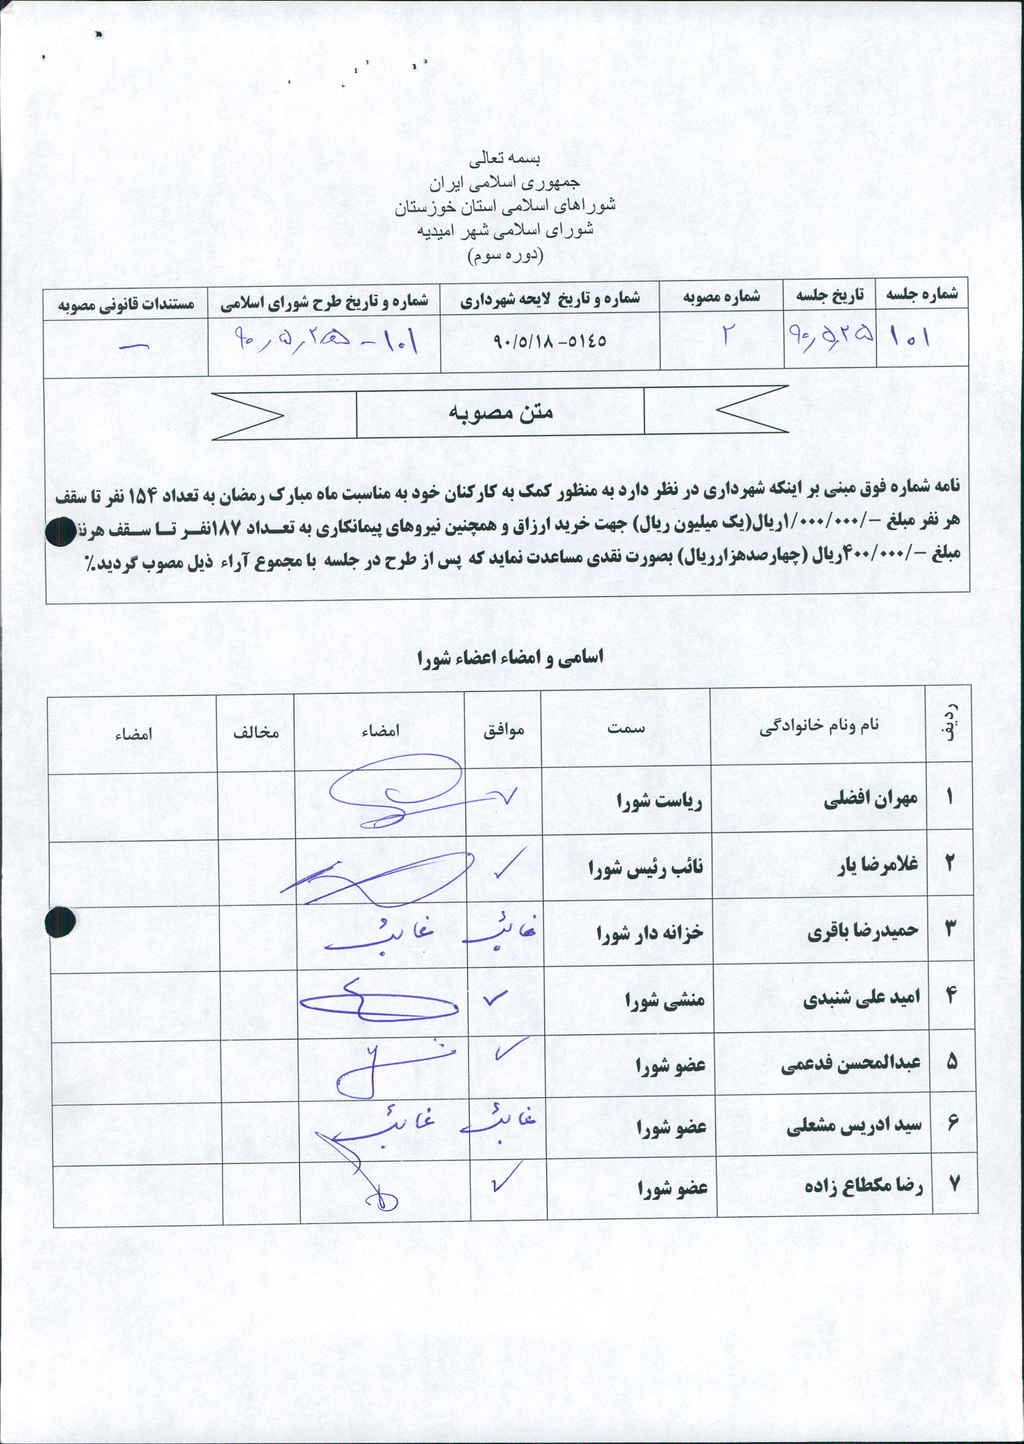 بسمه تعالی
جمهوری اسلامی ایران
شوراهای اسلامی استان خوزستان
شورای اسلامی شهر امیدیه
(دوره سوم)
شماره جلسه	تاریخ جلسه	شماره مصوبه	شماره و تاریخ لایحه شهرداری	شماره و تاریخ طرح شورای اسلامی	مستندات قانونی مصوبه
۱۰۱	۹۰٫۵٫۲۵	۲	۹۰/۵/۱۸-۵۱۴۵	۱۰۱ - ۹۰٫۵٫۲۵	—
متن مصوبه
نامه شماره فوق مبنی بر اینکه شهرداری در نظر دارد به منظور کمک به کارکنان خود به مناسبت ماه مبارک رمضان به تعداد ۱۵۴ نفر تا سقف
هر نفر مبلغ -/۱/۰۰۰/۰۰۰ریال(یک میلیون ریال) جهت خرید ارزاق و همچنین نیروهای پیمانکاری به تعداد ۱۸۷نفر تا سقف هرنفر
مبلغ -/۴۰۰/۰۰۰ریال (چهارصدهزارریال) بصورت نقدی مساعدت نماید که پس از طرح در جلسه با مجموع آراء ذیل مصوب گردید.٪
اسامی و امضاء اعضاء شورا
ردیف	نام ونام خانوادگی	سمت	موافق	امضاء	مخالف	امضاء
۱	مهران افضلی	ریاست شورا	✓
۲	غلامرضا یار	نائب رئیس شورا	✓
۳	حمیدرضا باقری	خزانه دار شورا	غائب	غائب
۴	امید علی شنبدی	منشی شورا	✓
۵	عبدالمحسن فدعمی	عضو شورا	✓
۶	سید ادریس مشعلی	عضو شورا	غائب	غائب
۷	رضا مکطاع زاده	عضو شورا	✓